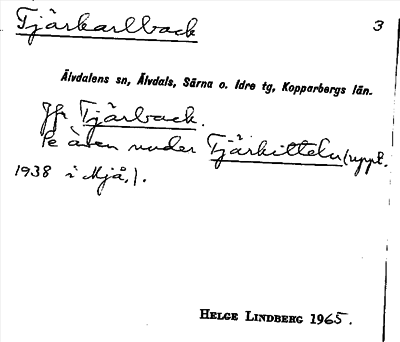 Tjärkarlback 3
Älvdalens sn, Älvdals, Särna o. Idre tg, Kopparbergs län.
Jfr Tjärback.
Se även under Tjärkitteln (uppt.
1938 i Mjå.).
HELGE LINDBERG 1965.